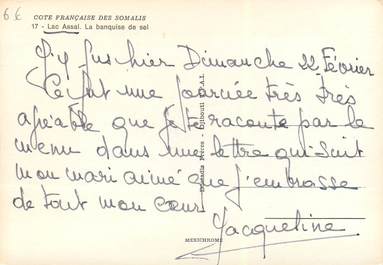 6€
COTE FRANÇAISE DES SOMALIS
17 - Lac Assal. La banquise de sel
J'y fus hier Dimanche 22 Février
Ce fut une journée très très
agréable que je te raconte par le
menu dans une lettre qui suit
mon mari aimé que j'embrasse
de tout mon cœur
Jacqueline
Frères - Djibouti
MEXICHROME